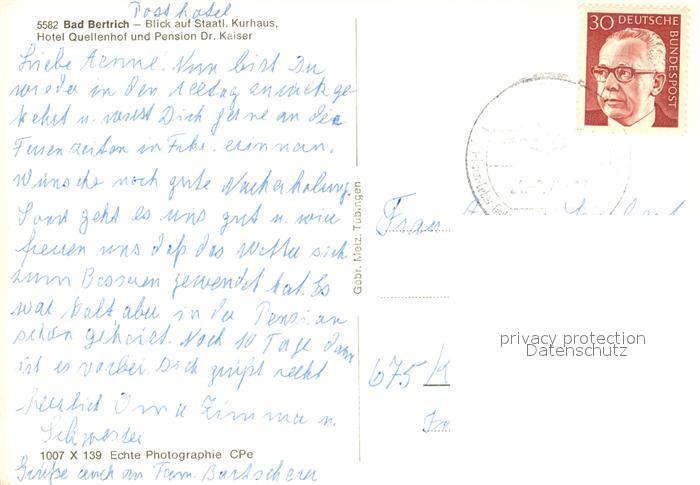 Posthotel
5582 Bad Bertrich – Blick auf Staatl. Kurhaus,
Hotel Quellenhof und Pension Dr. Kaiser
Liebe Aenne. Nun bist Du
wieder in den Alltag zurück ge
kehrt u. wirst Dich gerne an die
Ferienzeiten in erinnern.
Wünsche noch gute Nacherholung.
Sonst geht es uns gut u. wir
freuen uns daß das Wetter sich
zum Besseren gewendet hat. Es
war kalt aber in der Pension
schön geheizt. Noch 10 Tage dann
ist es vorbei. Dich grüßt recht
herzlich Oma Zimmer u.
Schwester
1007 X 139 Echte Photographie CPe
Grüße auch an Fam. Bartscherer
Gebr. Metz, Tübingen
30 DEUTSCHE
BUNDESPOST
Frau
675/
privacy protection
Datenschutz